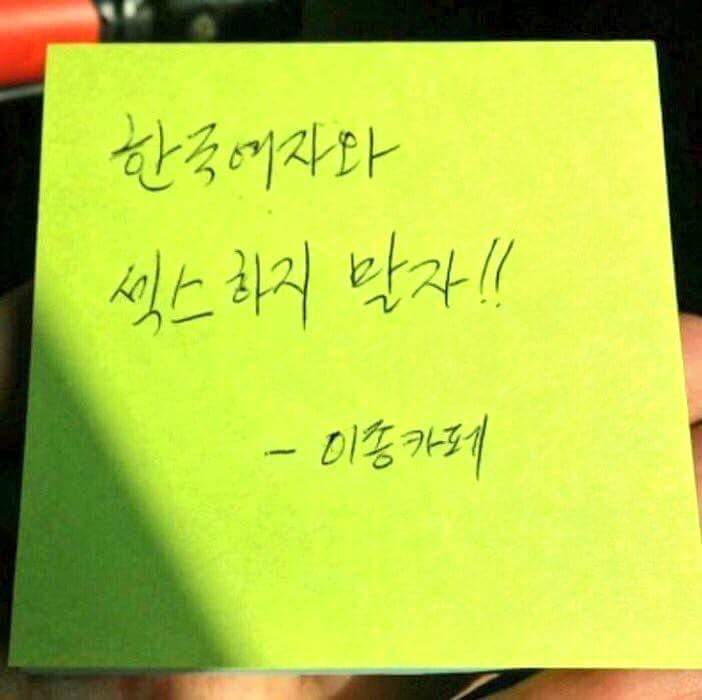 한국여자와
섹스하지 말자!!
- 이종카페